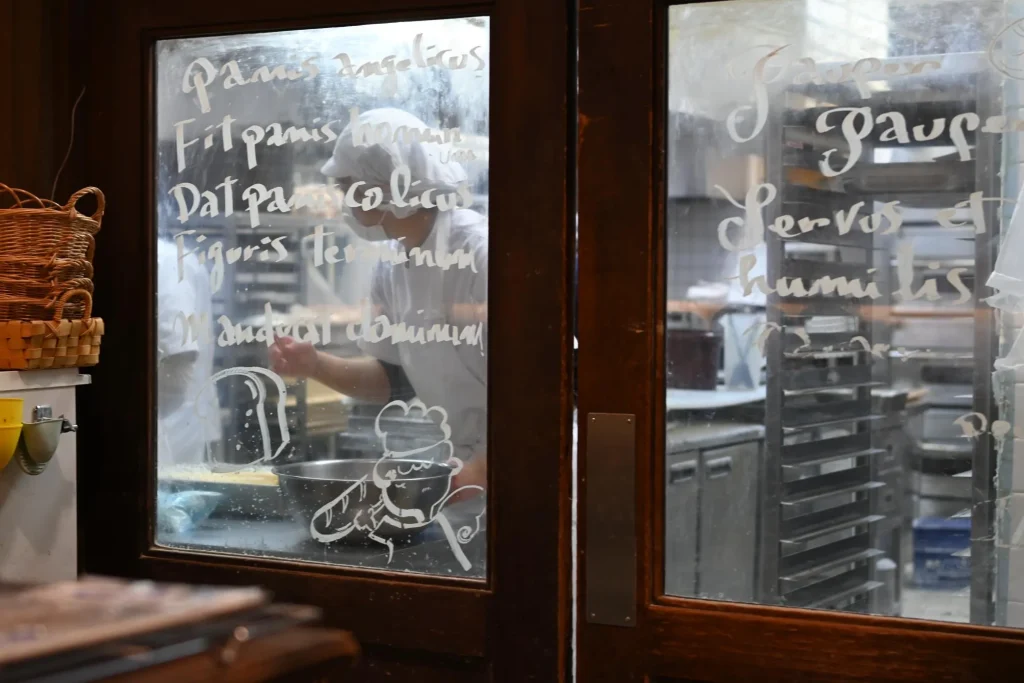 Panis angelicus
Fit panis hominum
Dat panis cœlicus
Figuris terminum
Manducat dominum
Pauper
Paupe
Servus et
humilis